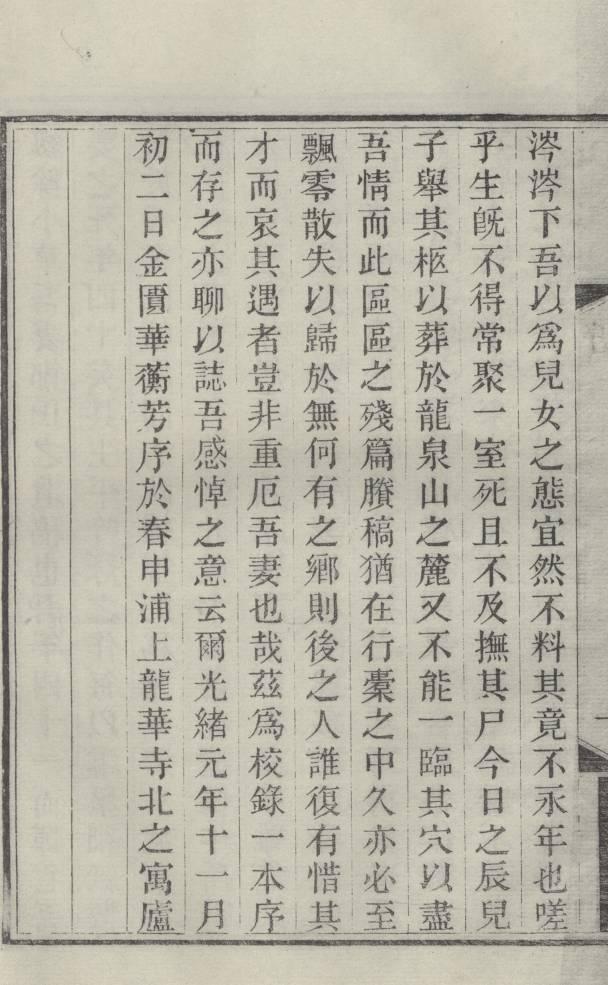 涔涔下吾以爲兒女之態宜然不料其竟不永年也嗟
乎生旣不得常聚一室死且不及撫其尸今日之辰兒
子舉其柩以葬於龍泉山之麓又不能一臨其穴以盡
吾情而此區區之殘篇賸稿猶在行橐之中久亦必至
飄零散失以歸於無何有之鄉則後之人誰復有惜其
才而哀其遇者豈非重厄吾妻也哉茲爲校錄一本序
而存之亦聊以誌吾感悼之意云爾光緒元年十一月
初二日金匱華蘅芳序於春申浦上龍華寺北之寓廬